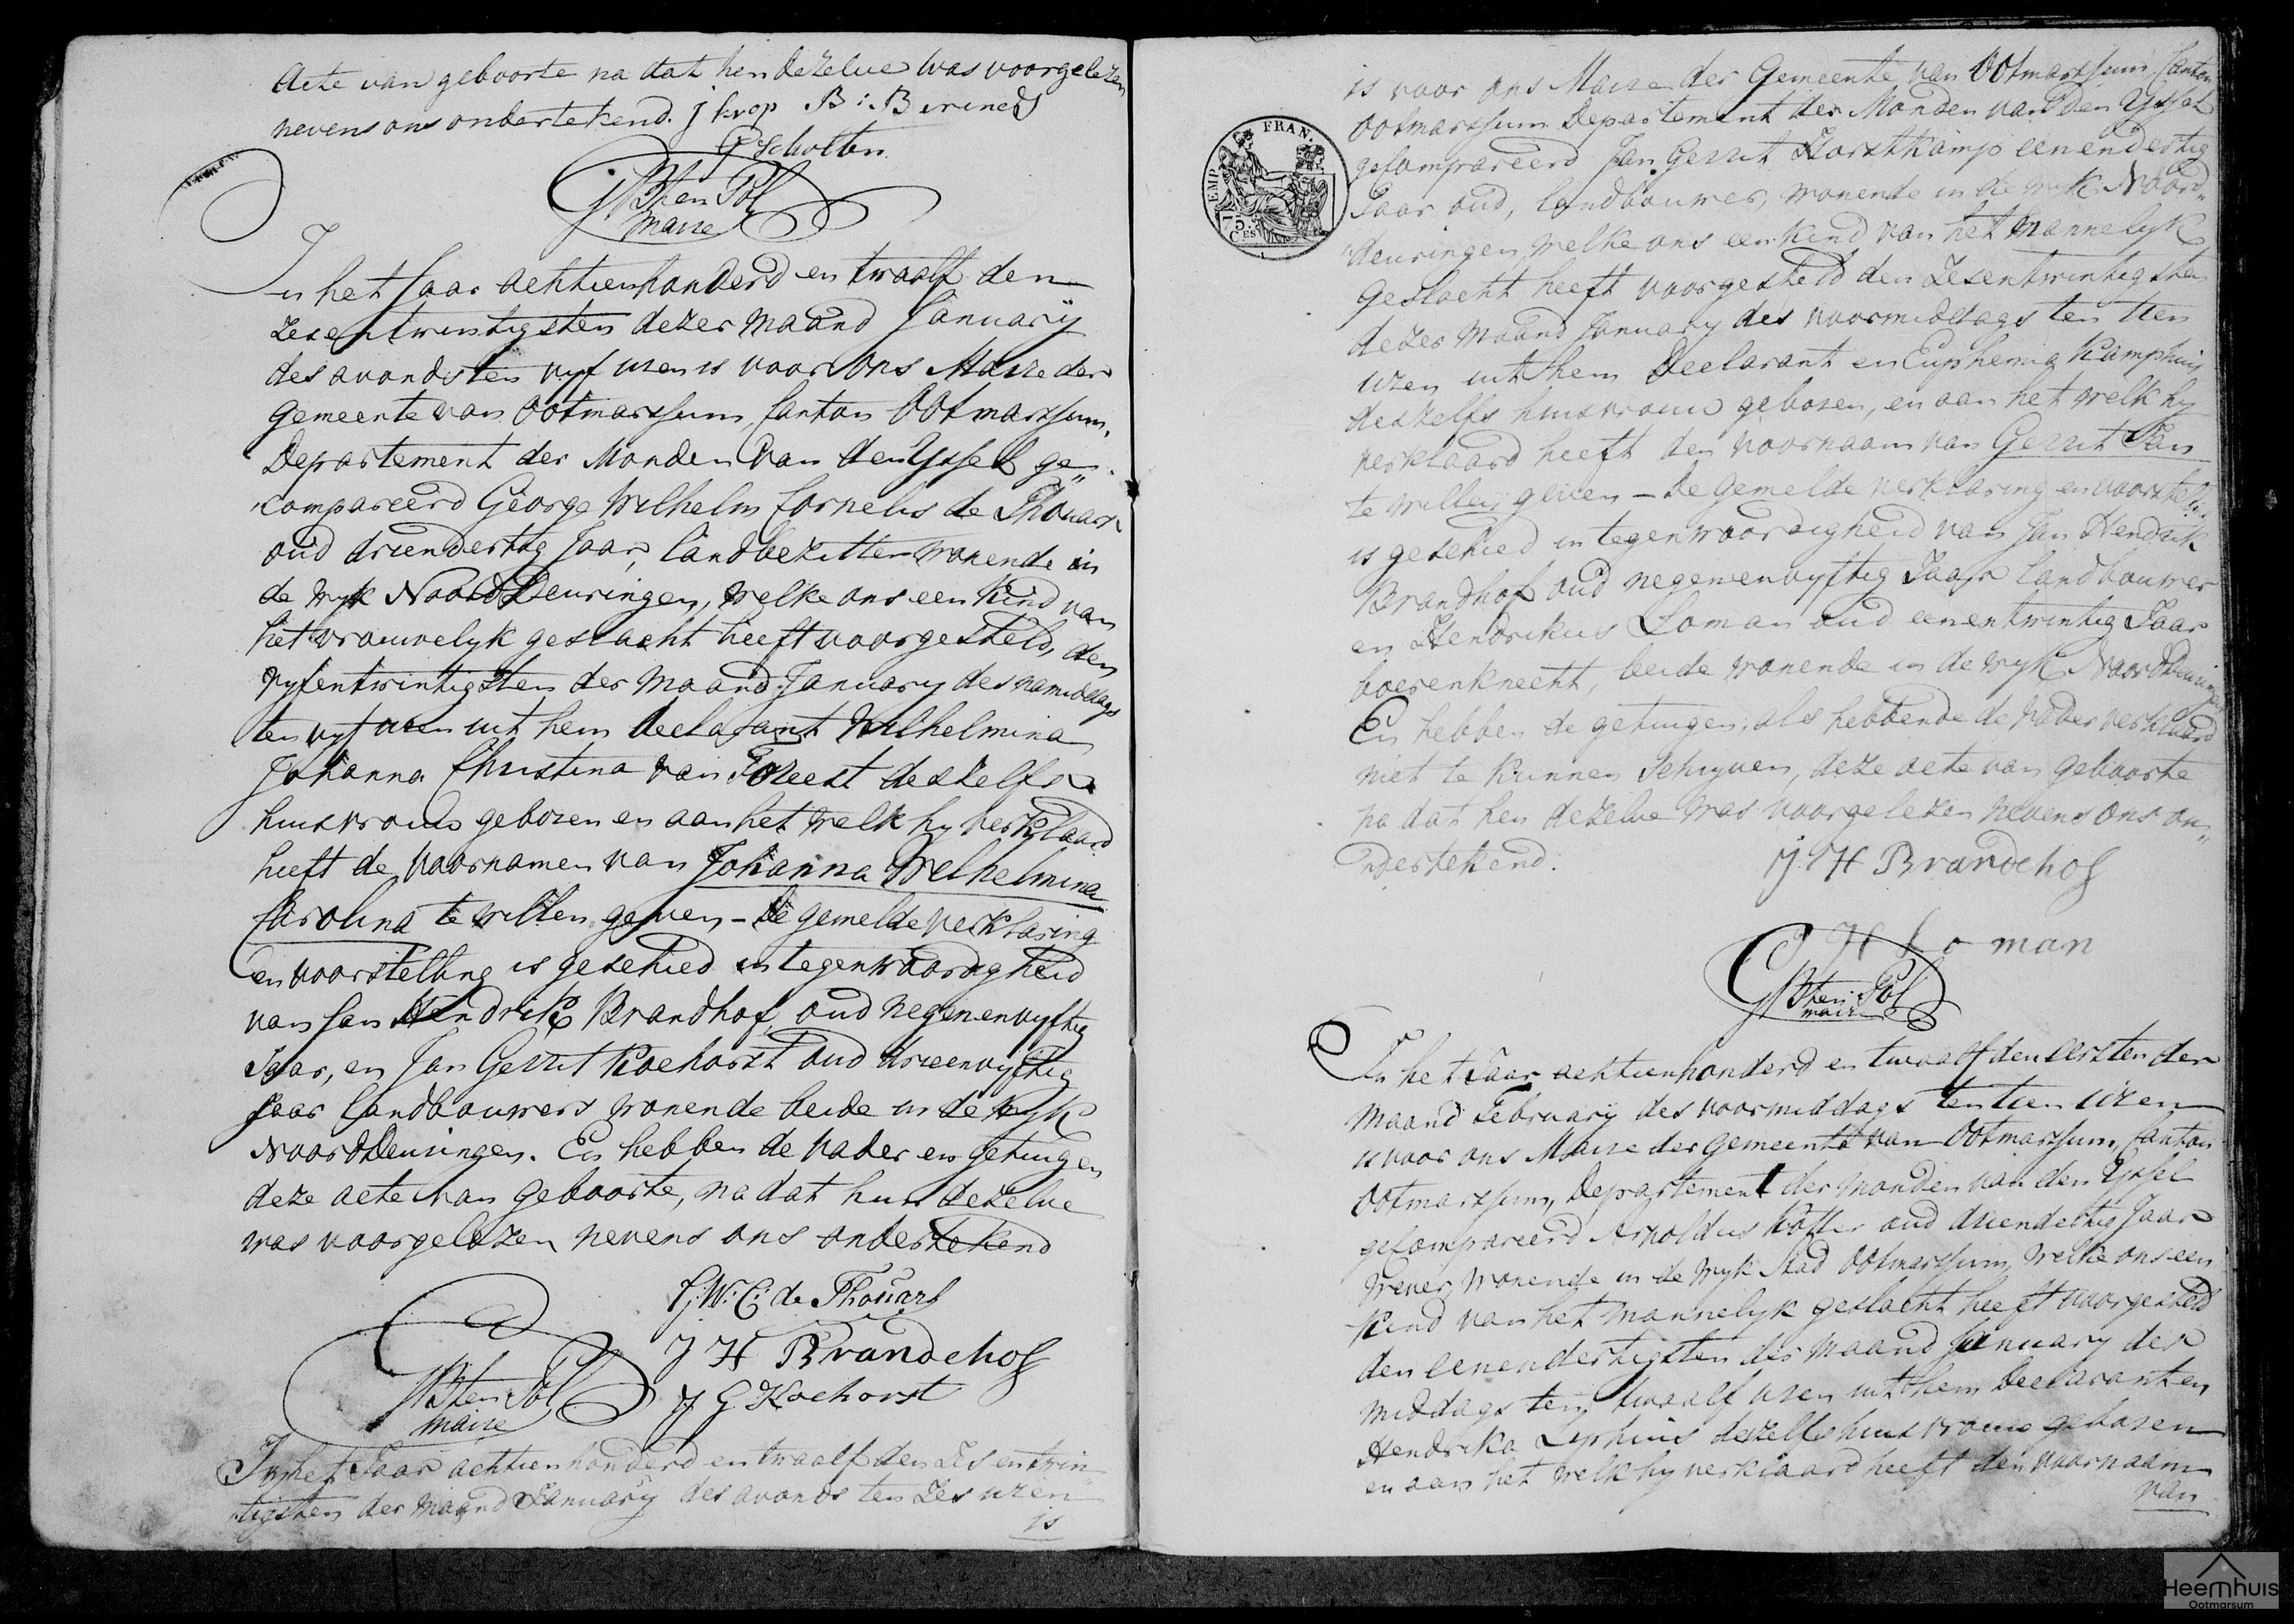 Acte van geboorte na dat hen dezelve was voorgelezen
nevens ons ondertekend. J krop B: B
G Scholten
ten Pol
maire
In het Jaar achttienhonderd en twaalf den
zesentwintigsten dezer maand January
des avonds ten vyf uren is voor ons Maire der
Gemeente van Ootmarssum, Canton Ootmarssum,
Departement der Monden van den Yssel ge„
compareerd George Wilhelm Cornelis de Thouars
oud drieendertig Jaar, landbezitter wonende in
de wyk NoordDeuringen, welke ons een kind van
het vrouwelyk geslacht heeft voorgesteld, den
vyfentwintigsten der maand January des namiddags
ten vyf uren uit hem Declarant Wilhelmina
Johanna Christina van Foreest deszelfs
huisvrouw geboren en aan het welk hy verklaard
heeft de voornamen van Johanna Wilhelmina
Carolina te willen geven – de gemelde verklaring
en voorstelling is geschied in tegenwoordigheid
van Jan Hendrik Brandhof, oud negenenvyftig
Jaar, en Jan Gerrit Koehorst oud drieenvyftig
Jaar landbouwers wonende beide in de wyk
NoordDeuringen. En hebben de vader en getuigen
deze acte van geboorte, na dat hun dezelve
was voorgelezen nevens ons ondertekend
G: W: C: de Thouars
J H Brandehof
J G Koehorst
ten Pol
maire
In het Jaar achttienhonderd en twaalf den Zesentwin
tigsten der maand January des avonds ten Zes uren
is
is voor ons Maire der Gemeente van Ootmarssum, Canton
Ootmarssum Departement der Monden van den Yssel
gecompareerd Jan Gerrit Horstkamp eenendertig
Jaar oud, landbouwer, wonende in de wyk Noord„
deuringen, welke ons een kind van het mannelyk
Geslacht heeft voorgesteld den Zesentwintigsten
dezer maand January des voormiddags ten tien
uren uit hem Declarant en Euphemia Kamphuis
deszelfs huisvrouw geboren, en aan het welk hy
verklaard heeft den voornaam van Gerrit Jan
te willen geven – de gemelde verklaring en voorstelling
is geschied in tegenwoordigheid van Jan Hendrik
Brandhof oud negenenvyftig Jaar landbouwer
en Hendrikus Loman oud eenentwintig Jaar
boerenknecht, beide wonende in de wyk NoordDeuringen
En hebben de getuigen, als hebbende de vader verklaard
niet te kunnen schryven, deze acte van geboorte
na dat hen dezelve was voorgelezen nevens ons on„
dertekend.
J. H Brandehof
H Loman
ten Pol
maire
In het Jaar achttienhonderd en twaalf den eersten der
maand February des voormiddags ten tien uren
is voor ons Maire der Gemeente van Ootmarssum, Canton
Ootmarssum, Departement der Monden van den Yssel
gecompareerd Arnoldus oud drieendertig Jaar
Wever, wonende in de Wyk Stad Ootmarssum, welke ons een
kind van het mannelyk geslacht heeft voorgesteld
den eenendertigsten der maand January des
middags ten twaalf uren uit hem Declarant en
Hendrika deszelfs huisvrouw geboren
en aan het welk hy verklaard heeft den voornaam
van
EMP. FRAN.
75.
CES
Heemhuis
Ootmarsum